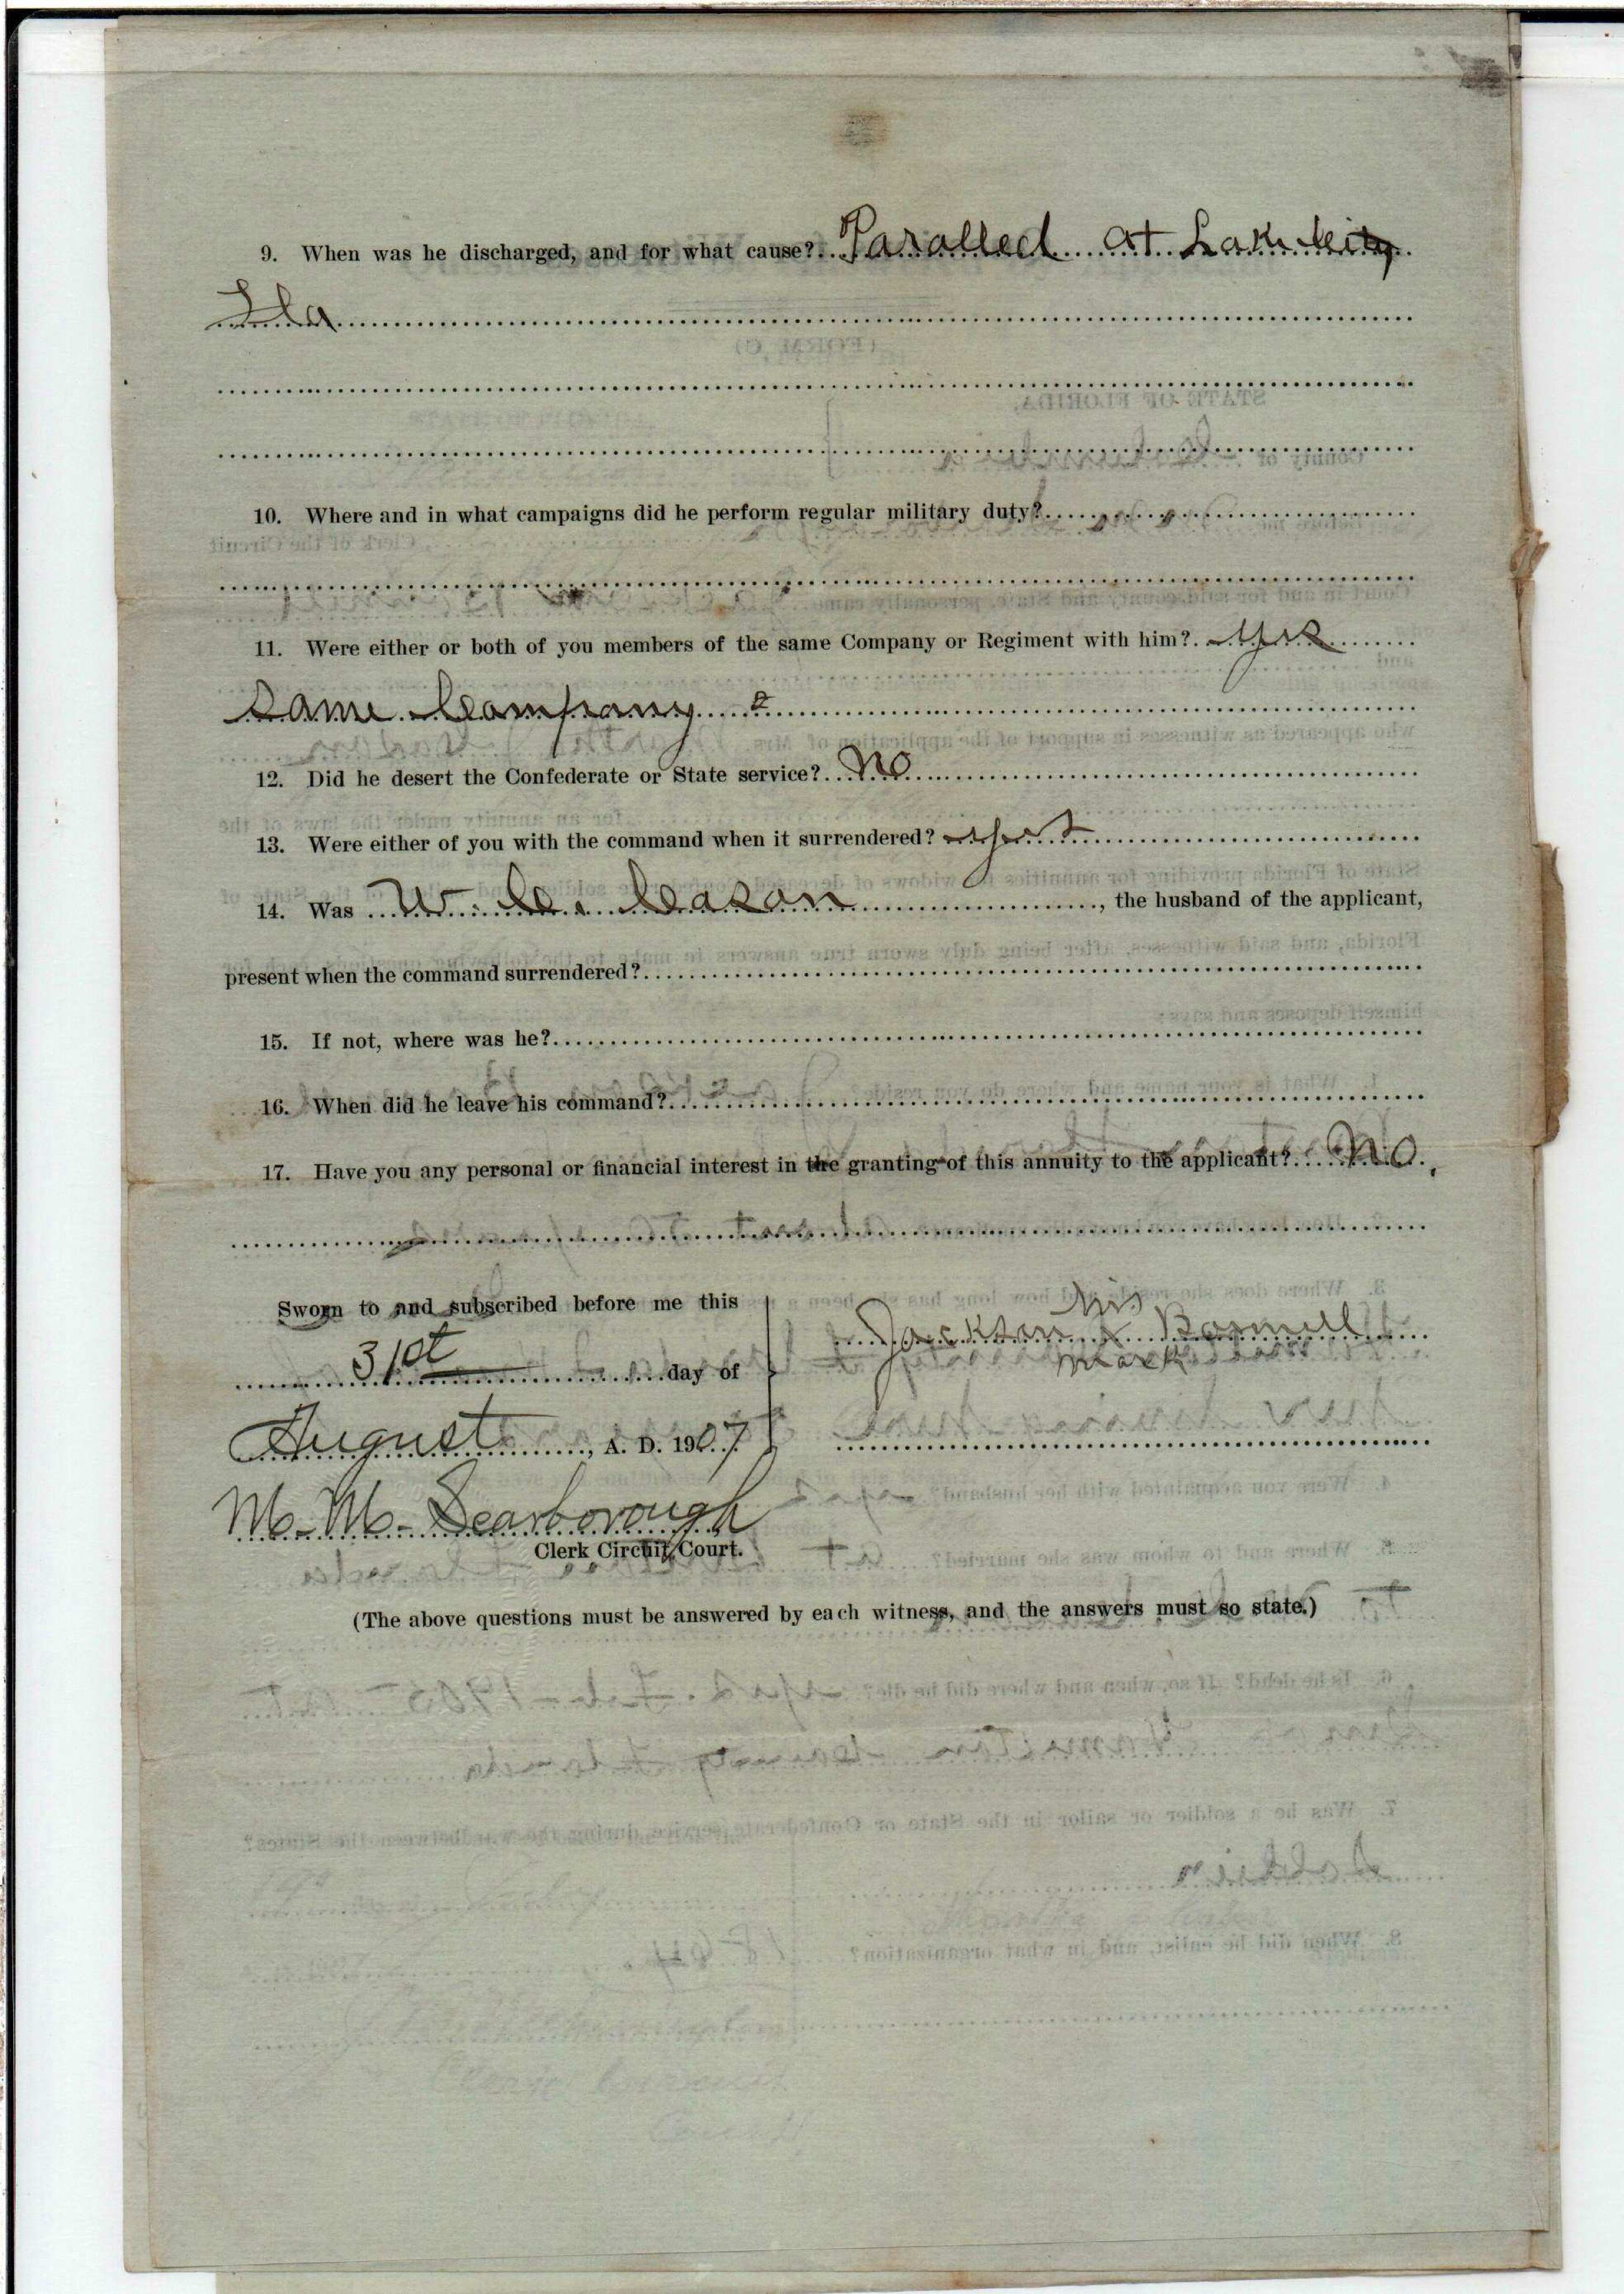 9. When was he discharged, and for what cause? Paralled at Lake City
Fla
10. Where and in what campaigns did he perform regular military duty?
11. Were either or both of you members of the same Company or Regiment with him? yes
same Company
12. Did he desert the Confederate or State service? No
13. Were either of you with the command when it surrendered? yes
14. Was W. C. Cason, the husband of the applicant,
present when the command surrendered?
15. If not, where was he?
16. When did he leave his command?
17. Have you any personal or financial interest in the granting of this annuity to the applicant? No.
Sworn to and subscribed before me this
31st day of
August, A. D. 1907
M. M. Scarborough
Clerk Circuit Court.
his
Jackson X
mark
(The above questions must be answered by each witness, and the answers must so state.)